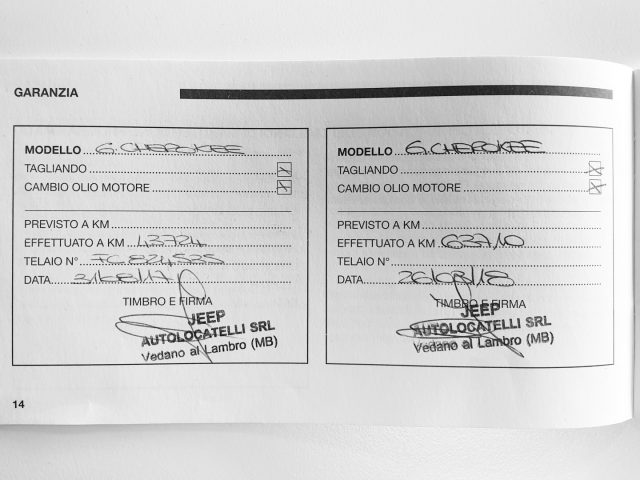 GARANZIA
MODELLO G. CHEROKEE
TAGLIANDO
CAMBIO OLIO MOTORE
PREVISTO A KM
EFFETTUATO A KM 43724
TELAIO N°
DATA
TIMBRO E FIRMA
JEEP
AUTOLOCATELLI SRL
Vedano al Lambro (MB)
MODELLO G. CHEROKEE
TAGLIANDO
CAMBIO OLIO MOTORE
PREVISTO A KM
EFFETTUATO A KM
TELAIO N°
DATA
TIMBRO E FIRMA
JEEP
AUTOLOCATELLI SRL
Vedano al Lambro (MB)
14